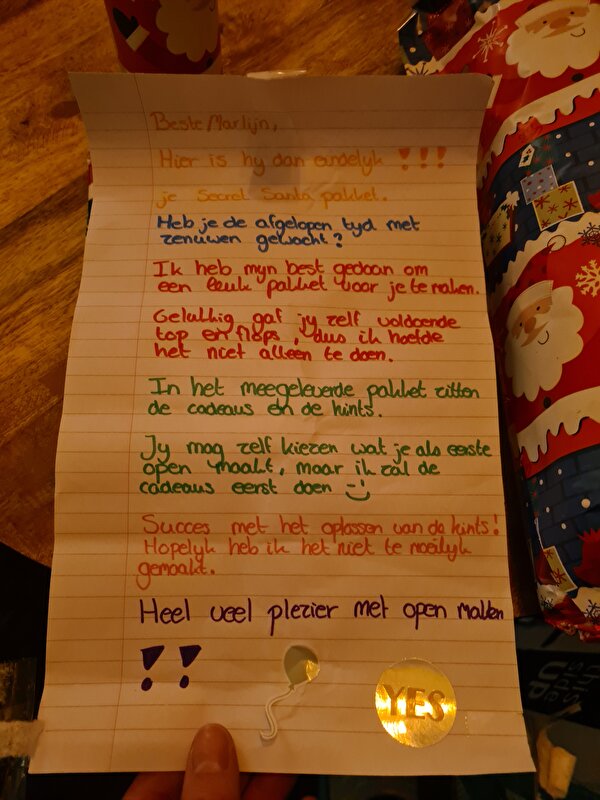 Beste Marlijn,
Hier is hy dan eindelyk !!!
je Secret Santa pakket.
Heb je de afgelopen tyd met
zenuwen gewacht?
Ik heb myn best gedaan om
een leuk pakket voor je te maken.
Gelukkig gaf jy zelf voldoende
top en flops, dus ik hoefde
het niet alleen te doen.
In het meegeleverde pakket zitten
de cadeaus en de hints.
Jy mag zelf kiezen wat je als eerste
open maakt, maar ik zal de
cadeaus eerst doen :)
Succes met het oplossen van de hints!
Hopelyk heb ik het niet te moeilyk
gemaakt.
Heel veel plezier met open maken
!!
YES
this
side
UP